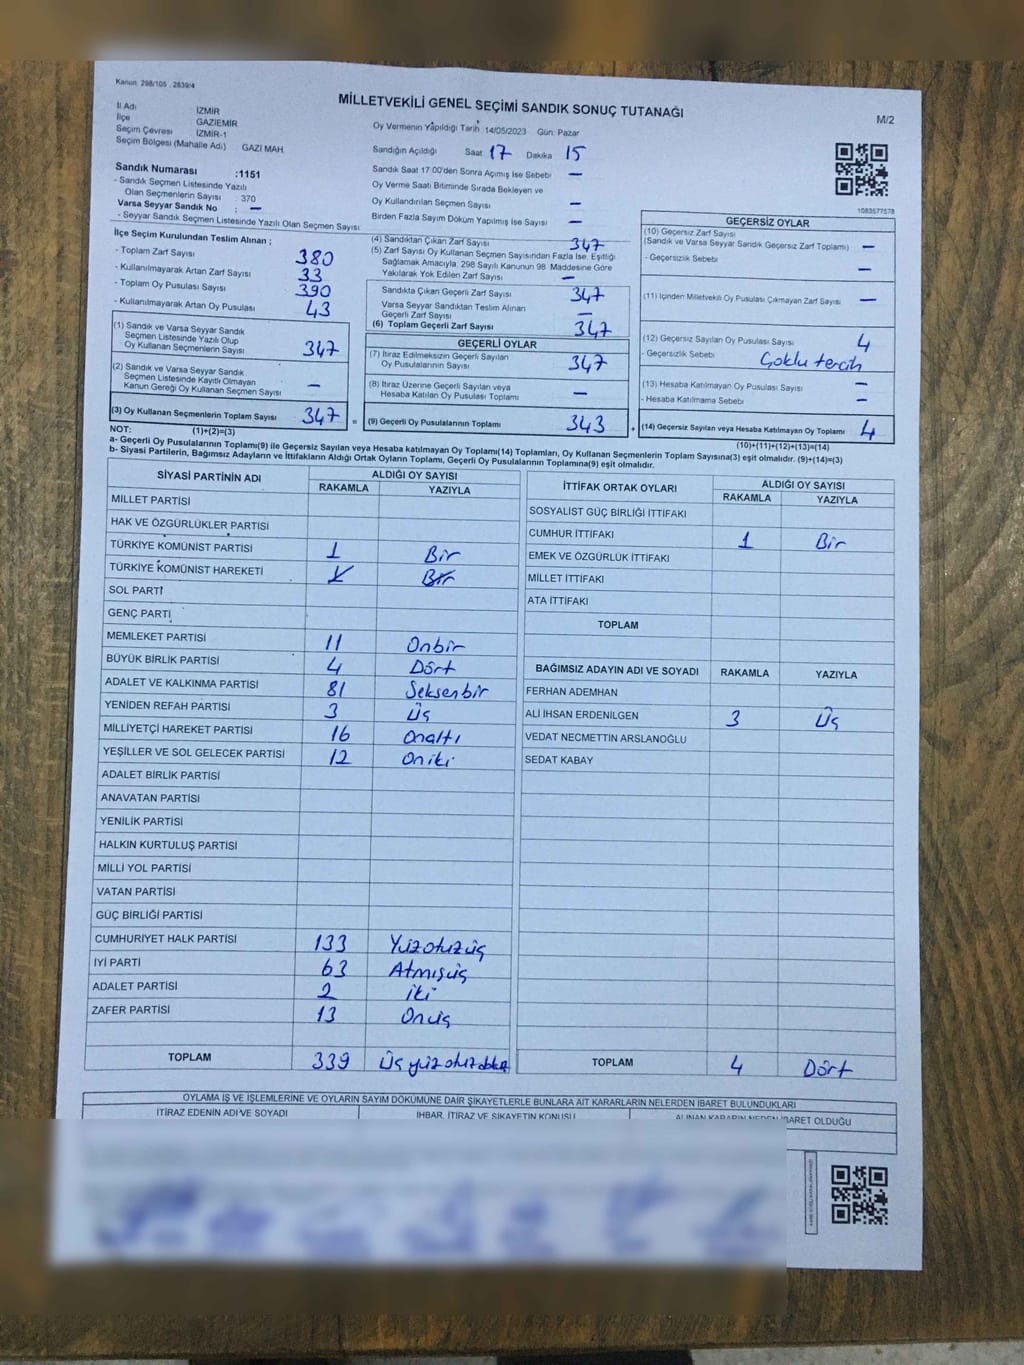 Kanun: 298/105 , 2839/4
MİLLETVEKİLİ GENEL SEÇİMİ SANDIK SONUÇ TUTANAĞI
M/2
İl Adı İZMİR
İlçe GAZİEMİR
Seçim Çevresi İZMİR-1
Seçim Bölgesi (Mahalle Adı) GAZİ MAH.
Oy Vermenin Yapıldığı Tarih 14/05/2023 Gün: Pazar
Sandığın Açıldığı Saat 17 Dakika 15
Sandık Saat 17:00'den Sonra Açılmış İse Sebebi –
Oy Verme Saati Bitiminde Sırada Bekleyen ve
Oy Kullandırılan Seçmen Sayısı –
Birden Fazla Sayım Döküm Yapılmış İse Sayısı –
Sandık Numarası :1151
- Sandık Seçmen Listesinde Yazılı
Olan Seçmenlerin Sayısı : 370
Varsa Seyyar Sandık No : –
- Seyyar Sandık Seçmen Listesinde Yazılı Olan Seçmen Sayısı:
1083577578
İlçe Seçim Kurulundan Teslim Alınan ;
- Toplam Zarf Sayısı 380
- Kullanılmayarak Artan Zarf Sayısı 33
- Toplam Oy Pusulası Sayısı 390
- Kullanılmayarak Artan Oy Pusulası 43
(1) Sandık ve Varsa Seyyar Sandık
Seçmen Listesinde Yazılı Olup
Oy Kullanan Seçmenlerin Sayısı 347
(2) Sandık ve Varsa Seyyar Sandık
Seçmen Listesinde Kayıtlı Olmayan
Kanun Gereği Oy Kullanan Seçmen Sayısı –
(3) Oy Kullanan Seçmenlerin Toplam Sayısı 347 =
(4) Sandıktan Çıkan Zarf Sayısı 347
(5) Zarf Sayısı Oy Kullanan Seçmen Sayısından Fazla İse, Eşitliği
Sağlamak Amacıyla, 298 Sayılı Kanunun 98. Maddesine Göre
Yakılarak Yok Edilen Zarf Sayısı –
Sandıkta Çıkan Geçerli Zarf Sayısı 347
Varsa Seyyar Sandıktan Teslim Alınan
Geçerli Zarf Sayısı –
(6) Toplam Geçerli Zarf Sayısı 347
GEÇERLİ OYLAR
(7) İtiraz Edilmeksizin Geçerli Sayılan
Oy Pusulalarının Sayısı 347
(8) İtiraz Üzerine Geçerli Sayılan veya
Hesaba Katılan Oy Pusulası Toplamı –
(9) Geçerli Oy Pusulalarının Toplamı 343 +
GEÇERSİZ OYLAR
(10) Geçersiz Zarf Sayısı
(Sandık ve Varsa Seyyar Sandık Geçersiz Zarf Toplamı) –
- Geçersizlik Sebebi –
(11) İçinden Milletvekili Oy Pusulası Çıkmayan Zarf Sayısı –
(12) Geçersiz Sayılan Oy Pusulası Sayısı 4
- Geçersizlik Sebebi Çoklu tercih
(13) Hesaba Katılmayan Oy Pusulası Sayısı –
- Hesaba Katılmama Sebebi –
(14) Geçersiz Sayılan veya Hesaba Katılmayan Oy Toplamı 4
NOT: (1)+(2)=(3)
(10)+(11)+(12)+(13)=(14)
a- Geçerli Oy Pusulalarının Toplamı(9) ile Geçersiz Sayılan veya Hesaba katılmayan Oy Toplamı(14) Toplamları, Oy Kullanan Seçmenlerin Toplam Sayısına(3) eşit olmalıdır. (9)+(14)=(3)
b- Siyasi Partilerin, Bağımsız Adayların ve İttifakların Aldığı Ortak Oyların Toplamı, Geçerli Oy Pusulalarının Toplamına(9) eşit olmalıdır.
SİYASİ PARTİNİN ADI ALDIĞI OY SAYISI
RAKAMLA YAZIYLA
MİLLET PARTİSİ
HAK VE ÖZGÜRLÜKLER PARTİSİ
TÜRKİYE KOMÜNİST PARTİSİ 1 Bir
TÜRKİYE KOMÜNİST HAREKETİ 1 Bir
SOL PARTİ
GENÇ PARTİ
MEMLEKET PARTİSİ 11 Onbir
BÜYÜK BİRLİK PARTİSİ 4 Dört
ADALET VE KALKINMA PARTİSİ 81 Seksenbir
YENİDEN REFAH PARTİSİ 3 Üç
MİLLİYETÇİ HAREKET PARTİSİ 16 Onaltı
YEŞİLLER VE SOL GELECEK PARTİSİ 12 Oniki
ADALET BİRLİK PARTİSİ
ANAVATAN PARTİSİ
YENİLİK PARTİSİ
HALKIN KURTULUŞ PARTİSİ
MİLLİ YOL PARTİSİ
VATAN PARTİSİ
GÜÇ BİRLİĞİ PARTİSİ
CUMHURİYET HALK PARTİSİ 133 Yüzotuzüç
İYİ PARTİ 63 Atmışüç
ADALET PARTİSİ 2 iki
ZAFER PARTİSİ 13 Onüç
TOPLAM 339 Üçyüzotuzdokuz
İTTİFAK ORTAK OYLARI ALDIĞI OY SAYISI
RAKAMLA YAZIYLA
SOSYALİST GÜÇ BİRLİĞİ İTTİFAKI
CUMHUR İTTİFAKI 1 Bir
EMEK VE ÖZGÜRLÜK İTTİFAKI
MİLLET İTTİFAKI
ATA İTTİFAKI
TOPLAM
BAĞIMSIZ ADAYIN ADI VE SOYADI RAKAMLA YAZIYLA
FERHAN ADEMHAN
ALİ İHSAN ERDENİLGEN 3 Üç
VEDAT NECMETTİN ARSLANOĞLU
SEDAT KABAY
TOPLAM 4 Dört
OYLAMA İŞ VE İŞLEMLERİNE VE OYLARIN SAYIM DÖKÜMÜNE DAİR ŞİKAYETLERLE BUNLARA AİT KARARLARIN NELERDEN İBARET BULUNDUKLARI
İTİRAZ EDENİN ADI VE SOYADI İHBAR, İTİRAZ VE ŞİKAYETİN KONUSU ALINAN KARARIN NEDEN İBARET OLDUĞU